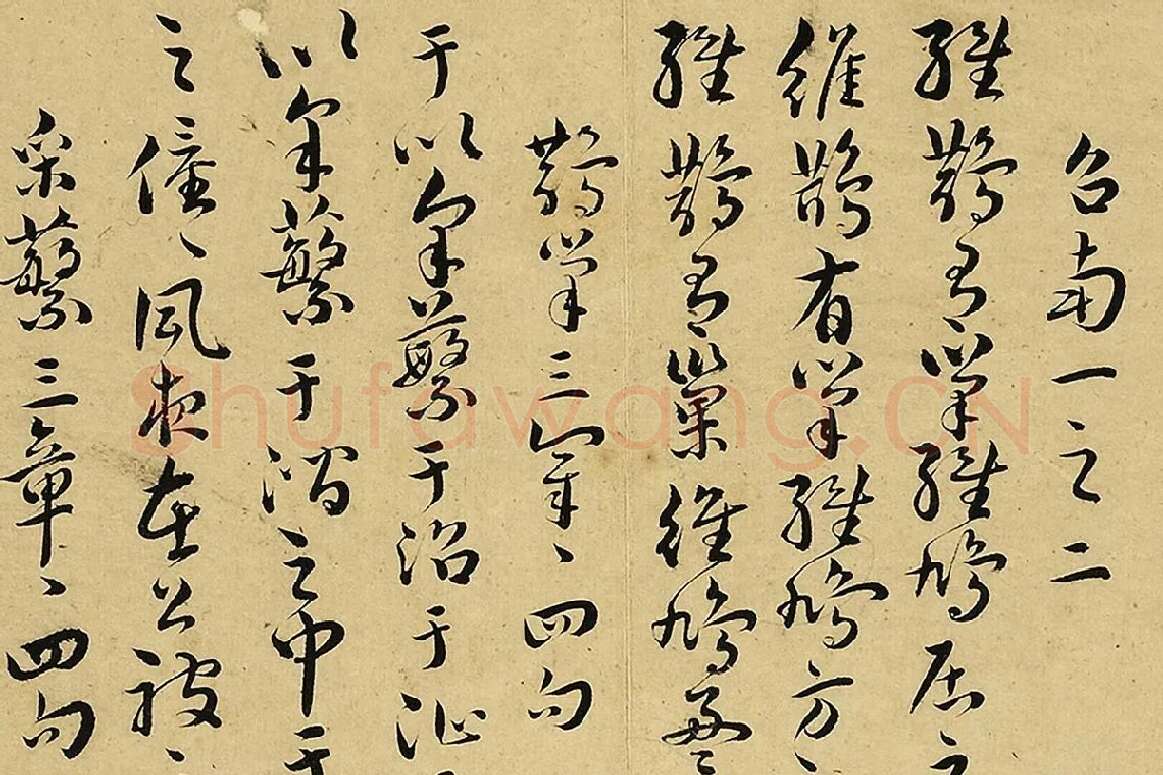 召南一之二
維鵲有巢維鳩居之
維鵲有巢維鳩方之
維鵲有巢維鳩盈之
鵲巢三章〻四句
于以采蘩于沼于沚
以采蘩于澗之中于
之僮〻夙夜在公被
采蘩三章〻四句
Shufawang.CN